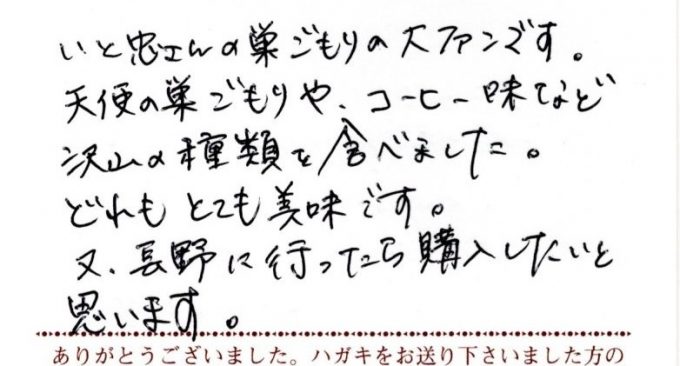 いと忠さんの巣ごもりの大ファンです。
天使の巣ごもりや、コーヒー味など
沢山の種類を食べました。
どれもとても美味です。
又、長野に行ったら購入したいと
思います。
ありがとうございました。ハガキをお送り下さいました方の